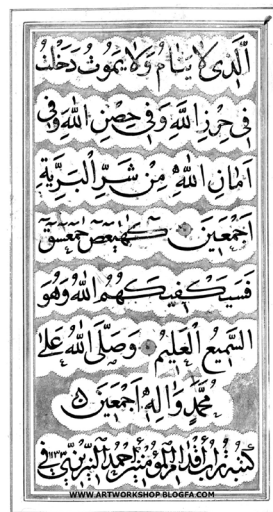 الَّذِى لَا يَنَامُ وَلَا يَمُوتُ دَخَلْتُ
فِى حِرْزِ اللّٰهِ وَفِى حِصْنِ اللّٰهِ وَفِى
اَمَانِ اللّٰهِ مِنْ شَرِّ الْبَرِيَّةِ
اَجْمَعِينَ كۤهٰيٰعۤصۤ حٰمۤعۤسۤقۤ
فَسَيَكْفِيكَهُمُ اللّٰهُ وَهُوَ
السَّمِيعُ الْعَلِيمُ وَصَلَّى اللّٰهُ عَلٰى
مُحَمَّدٍ وَاٰلِهِ اَجْمَعِينَ
كتبه تراب أقدام المؤمنين أحمد النيريزي في
WWW.ARTWORKSHOP.BLOGFA.COM